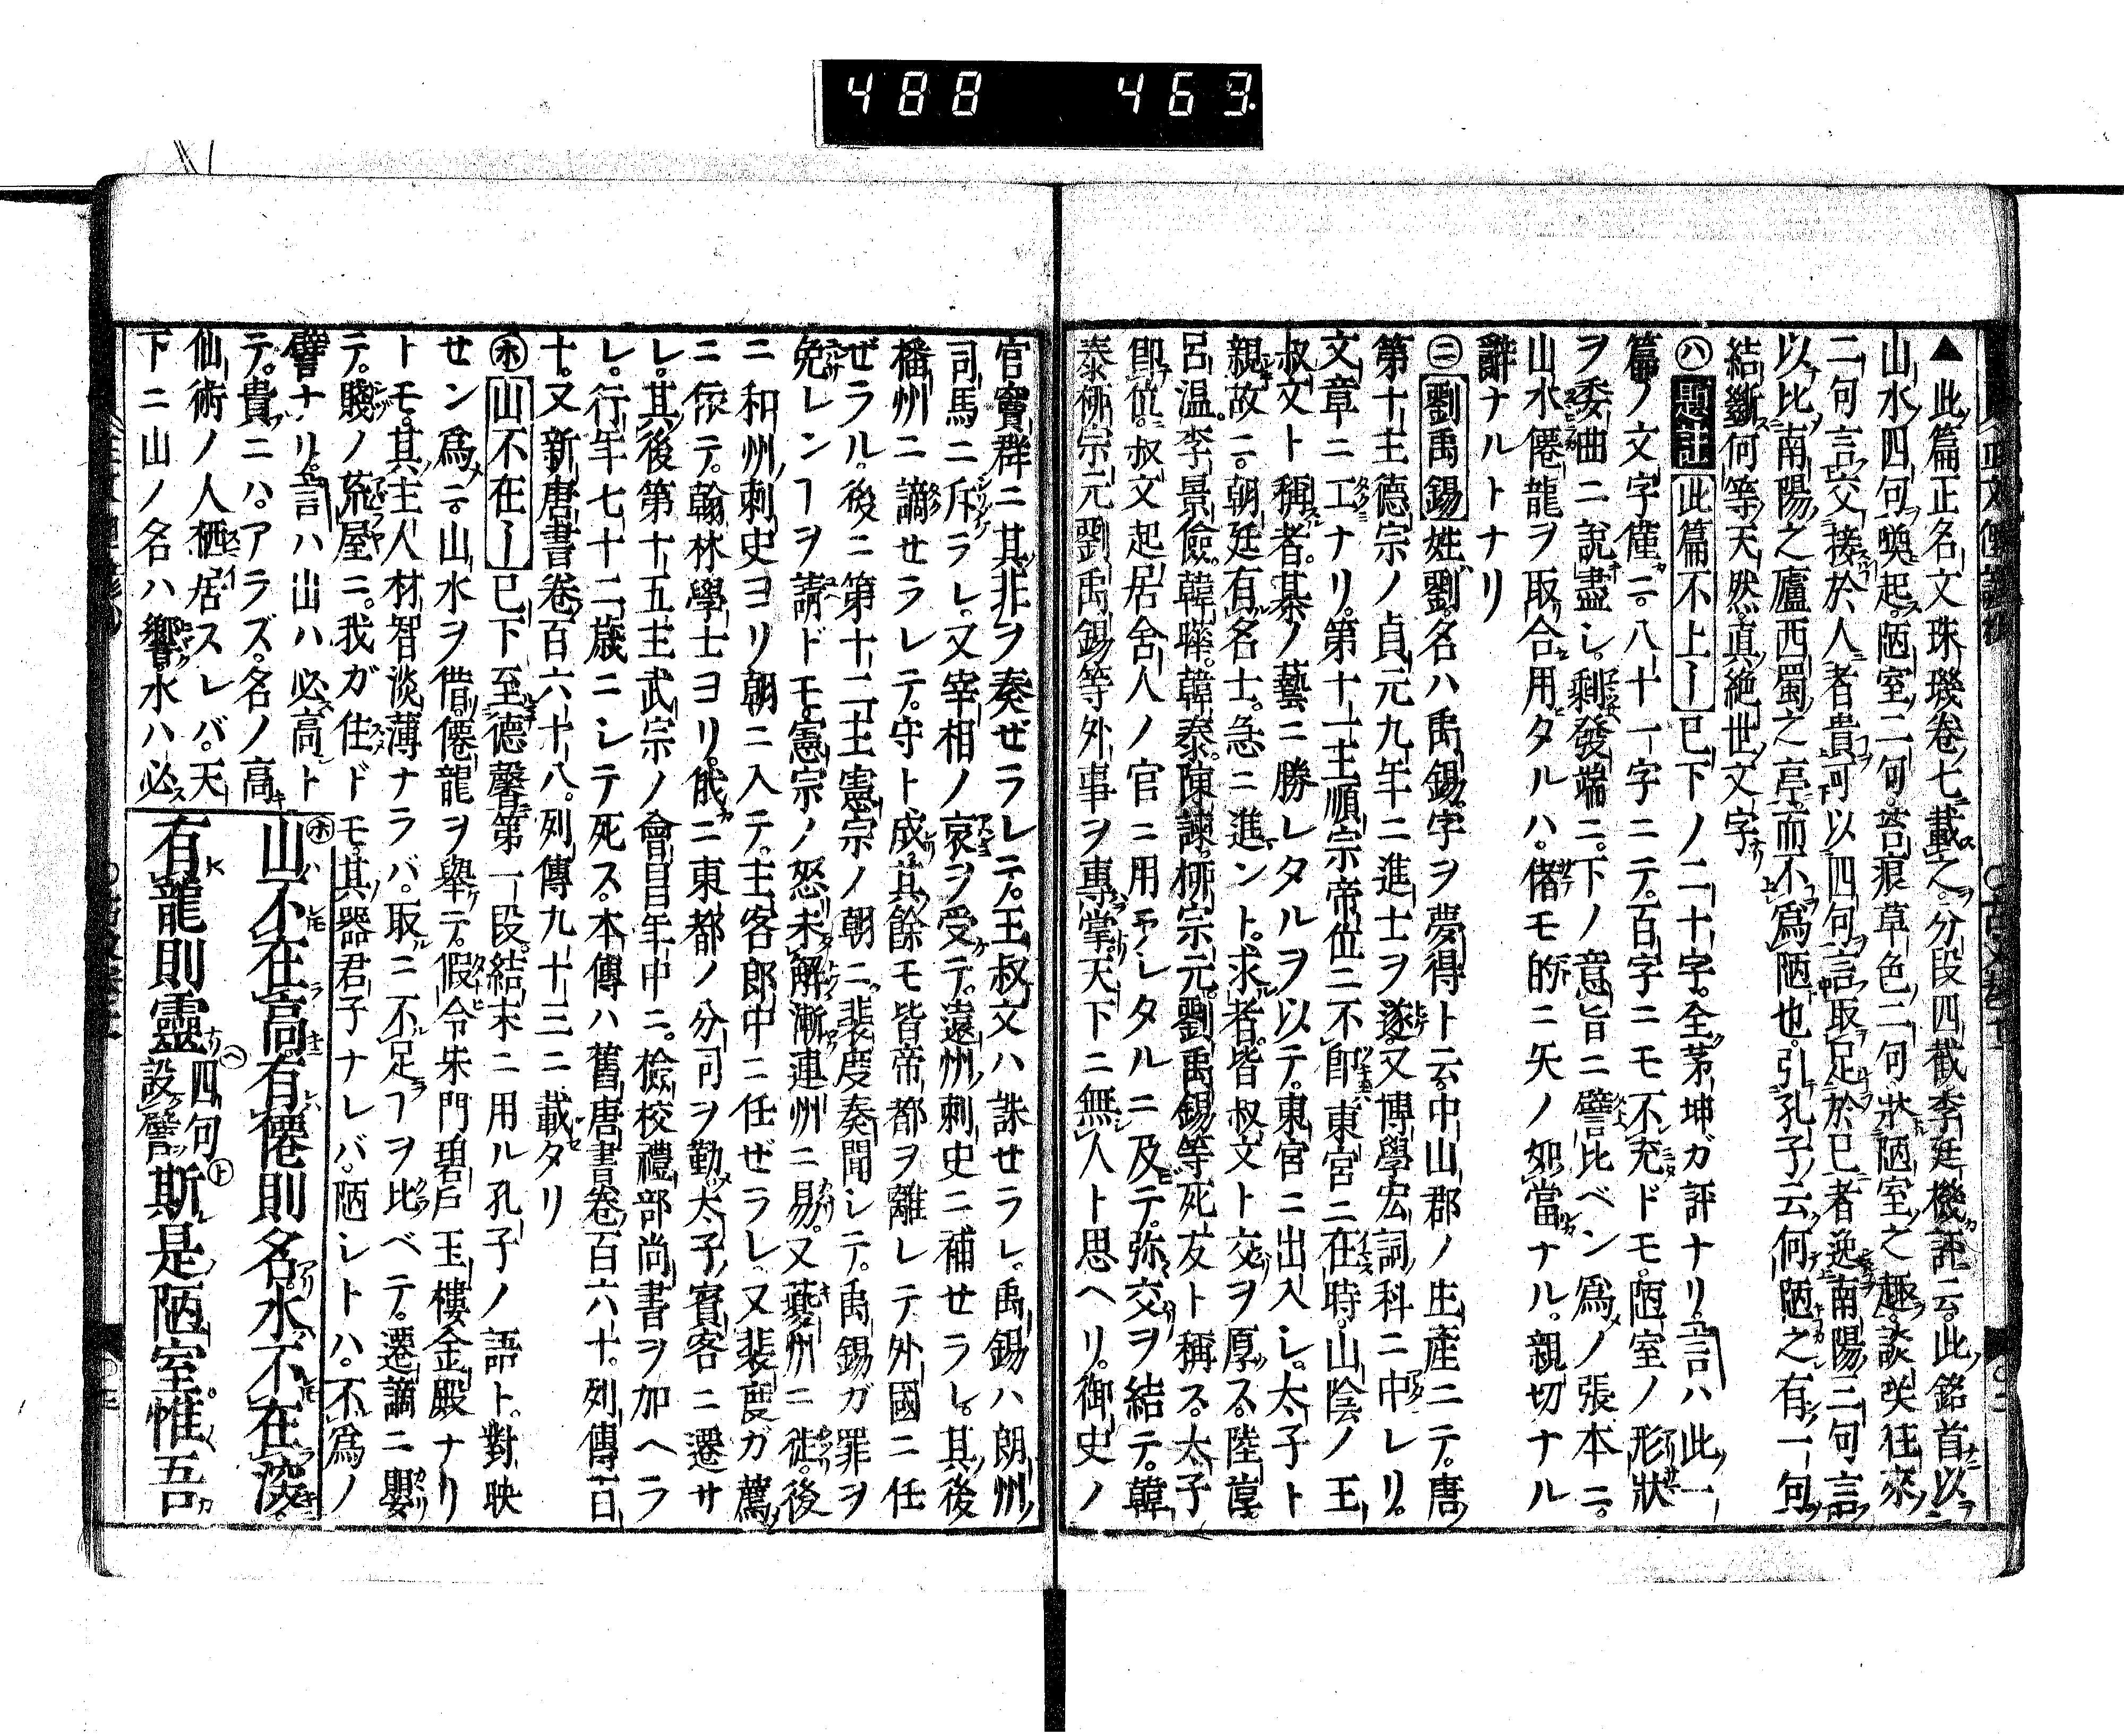 488 463
▲此篇正名文珠璣卷七載之分段四截李廷機評云此銘首以
山水四句喚起陋室二句苔痕草色二句狀陋室之趣談笑往來
二句言交接於人者貴可以四句言取足於已者逸南陽三句言
以比南陽之廬西蜀之亭而不爲陋也引孔子云何陋之有一句
結斷何等天然真絶世文字
㋩題註此篇不上―已下ノ二十字全茅坤ガ評ナリ言ハ此一
篇ノ文字僅ニ八十一字ニテ百字ニモ不充ドモ陋室ノ形狀
ヲ委曲ニ說盡シ剩發端ニ下ノ意旨ニ譬比ベン爲ノ張本ニ
山水僊龍ヲ取合用タルハ偖モ的ニ矢ノ如當ナル親切ナル
辭ナルトナリ
㋥劉禹錫姓劉名ハ禹錫字ヲ夢得ト云中山郡ノ生產ニテ唐
第十主德宗ノ貞元九年ニ進士ヲ遂又博學宏詞科ニ中レリ
文章ニ工ナリ第十一主順宗帝位ニ不卽東宮ニ在時山陰ノ王
叔文ト稱者棊ノ藝ニ勝レタルヲ以テ東宮ニ出入シ太子ト
親故ニ朝廷有名士急ニ進ント求者皆叔文ト交ヲ厚ス陸淳
呂温李景儉韓曄韓泰陳諫柳宗元劉禹錫等死友ト稱ス太子
卽位叔文起居舍人ノ官ニ用ヰレタルニ及テ弥交ヲ結テ韓
泰柳宗元劉禹錫等外事ヲ專掌天下ニ無人ト思ヘリ御史ノ
官竇群ニ其非ヲ奏ゼラレテ王叔文ハ誅セラレ禹錫ハ朗州ノ
司馬ニ斥ラレ又宰相ノ哀ヲ受テ遠州ノ刺史ニ補セラレ其後
播州ニ謫セラレテ守ト成其餘モ皆帝都ヲ離レテ外國ニ任
ゼラル後ニ第十二主憲宗ノ朝ニ裴度奏聞シテ禹錫ガ罪ヲ
免レンヿヲ請ドモ憲宗ノ怒未解漸連州ニ易又夔州ニ徙後
ニ和州ノ刺史ヨリ朝ニ入テ主客郎中ニ任ゼラレ又裴度ガ薦
ニ依テ翰林學士ヨリ俄ニ東都ノ分司ヲ勤太子ノ賓客ニ遷サ
レ其後第十五主武宗ノ會昌年中ニ檢校禮部尚書ヲ加ヘラ
レ行年七十二歳ニシテ死ス本傳ハ舊唐書卷百六十列傳百
十又新唐書卷百六十八列傳九十三ニ載タリ
㋭山不在―已下至德馨第一段結末ニ用ル孔子ノ語ト對映
セン爲ニ山水ヲ借僊龍ヲ舉テ假令朱門碧戶玉樓金殿ナリ
トモ其主人材智淡薄ナラバ取ニ不足ヿヲ比ベテ遷謫ニ嬰
テ賤ノ荒屋ニ我ガ住ドモ其器君子ナレバ陋シトハ不爲ノ
譬ナリ言ハ山ハ必高ト
テ貴ニハアラズ名ノ高
仙術ノ人栖居スレバ天
下ニ山ノ名ハ響水ハ必
㋭山不在高有僊則名水不在深
有龍則靈㋬四句設譬㋣斯是陋室惟吾